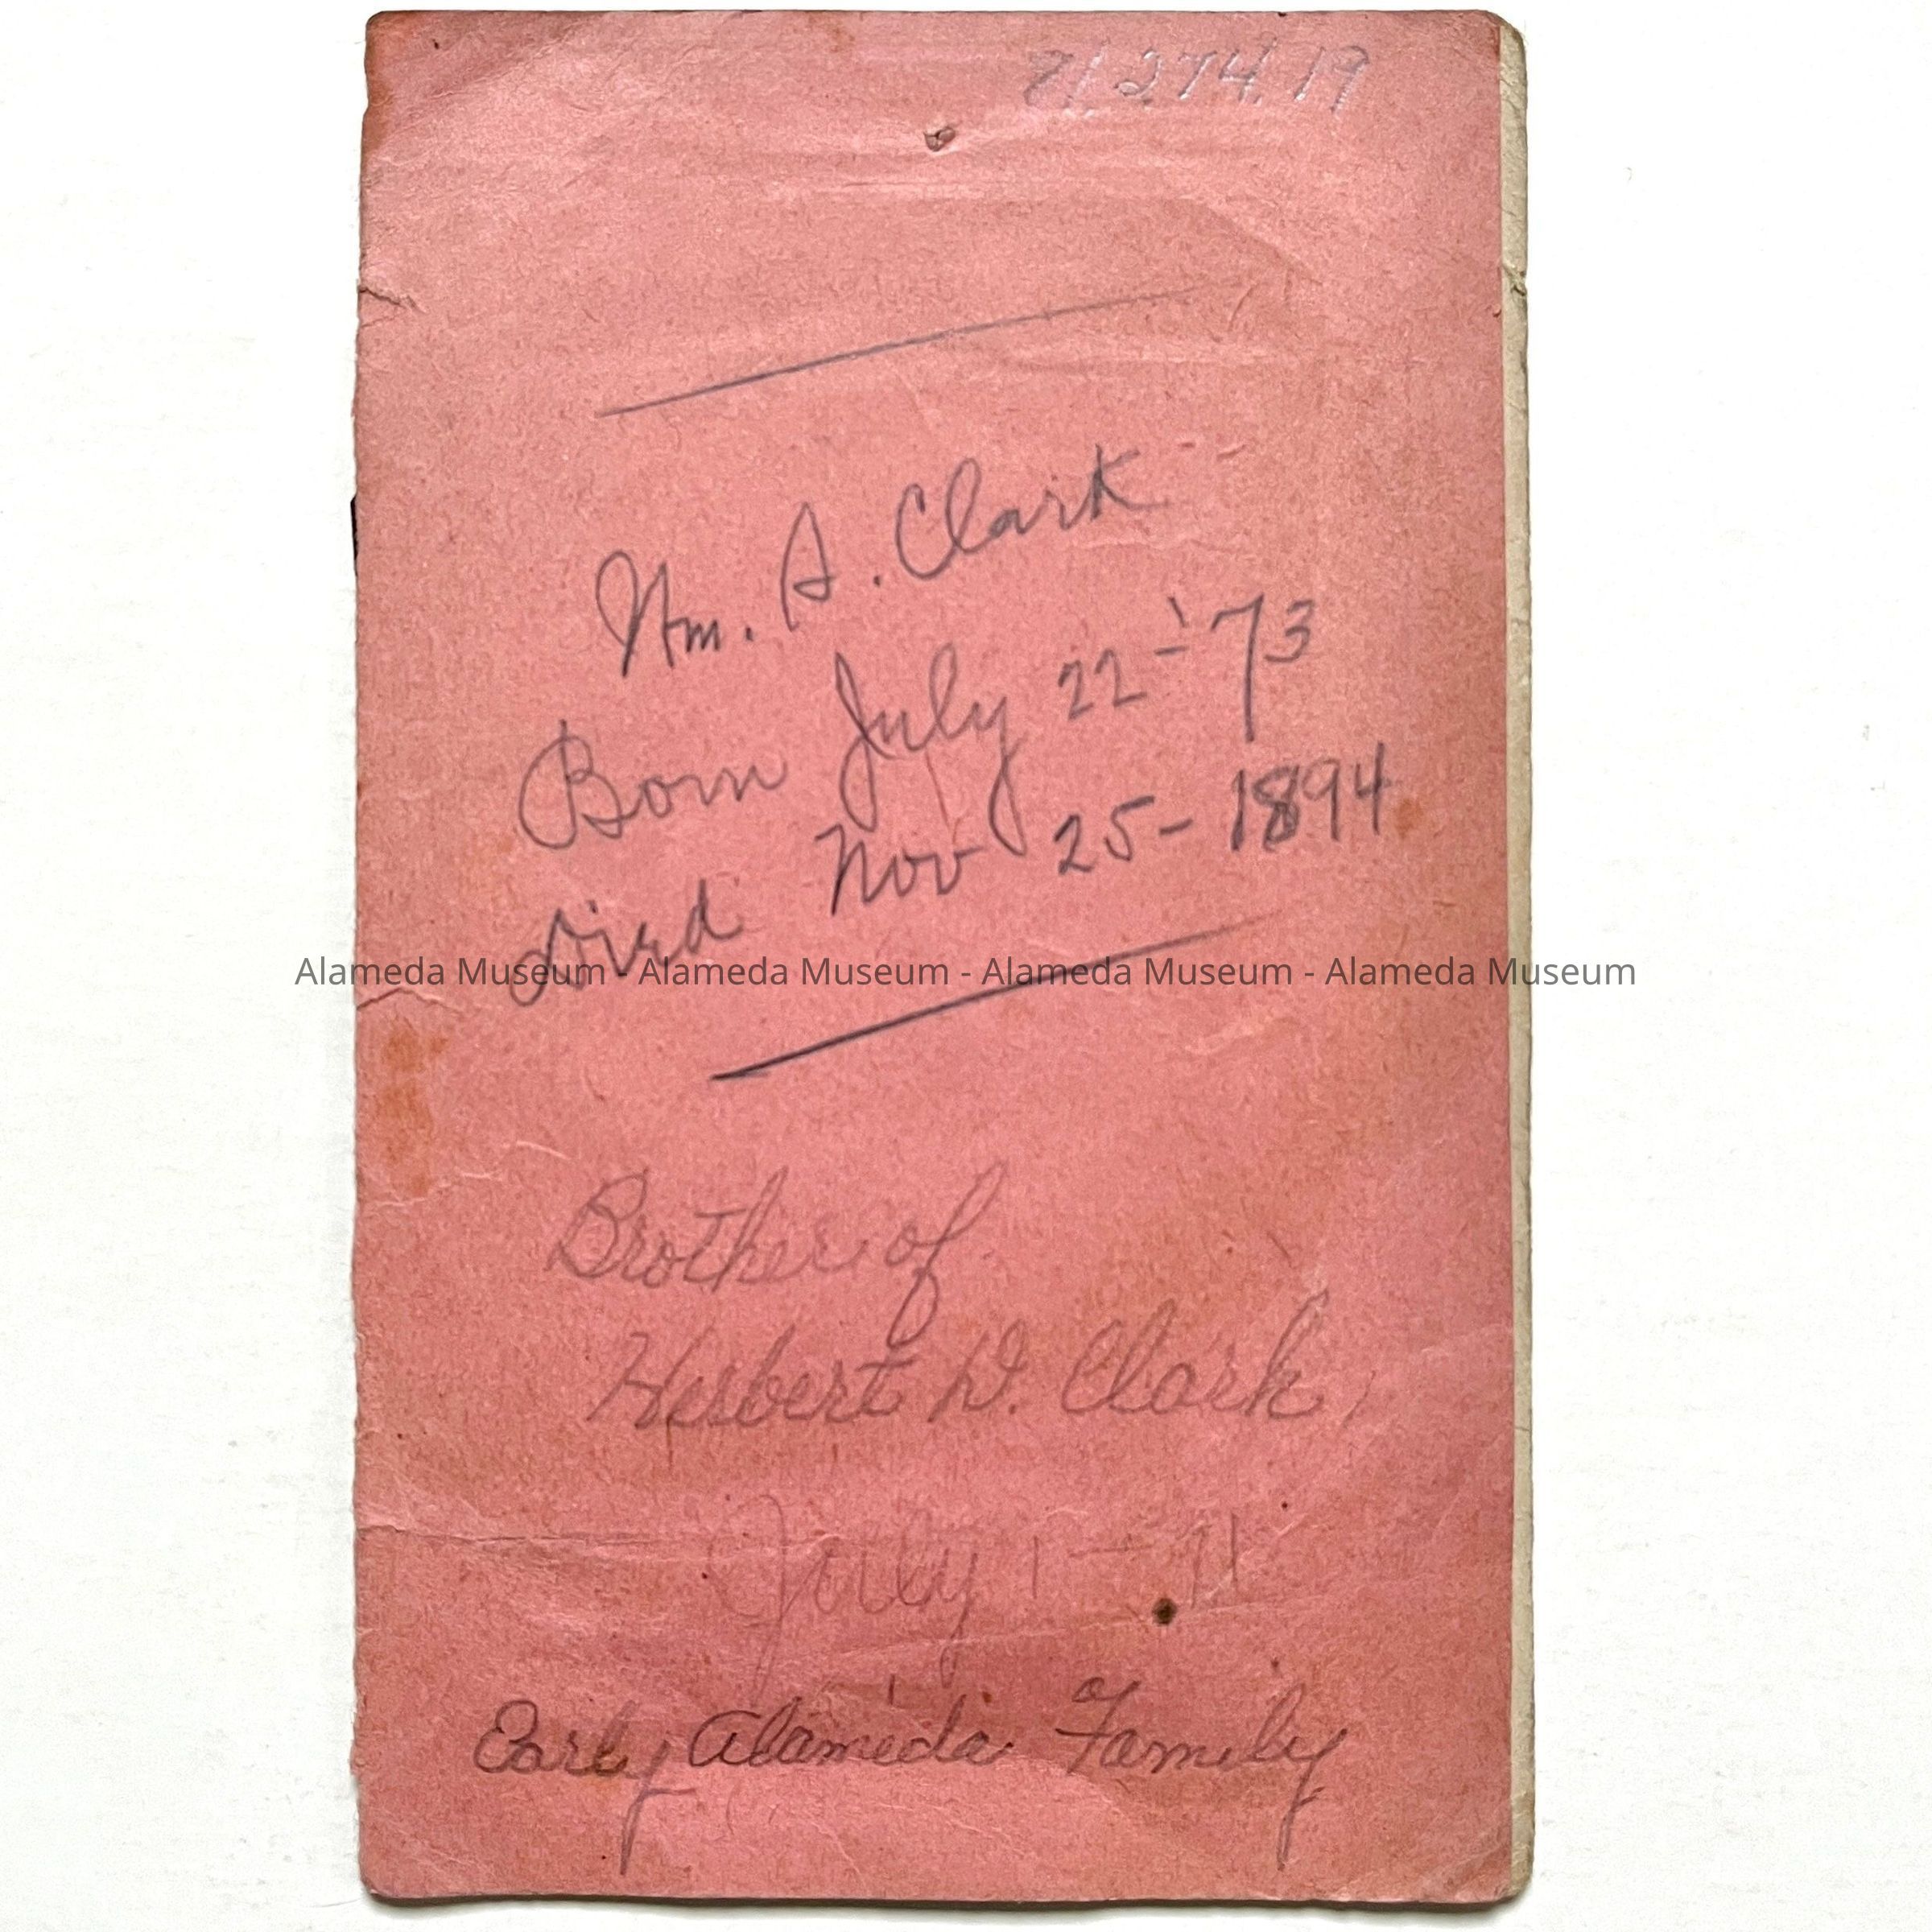 71.274.19
Wm. A. Clark
Born July 22-'73
Died Nov 25-1894
Alameda Museum - Alameda Museum - Alameda Museum - Alameda Museum
Brother of
Herbert D. Clark,
July 1-71
Early Alameda Family